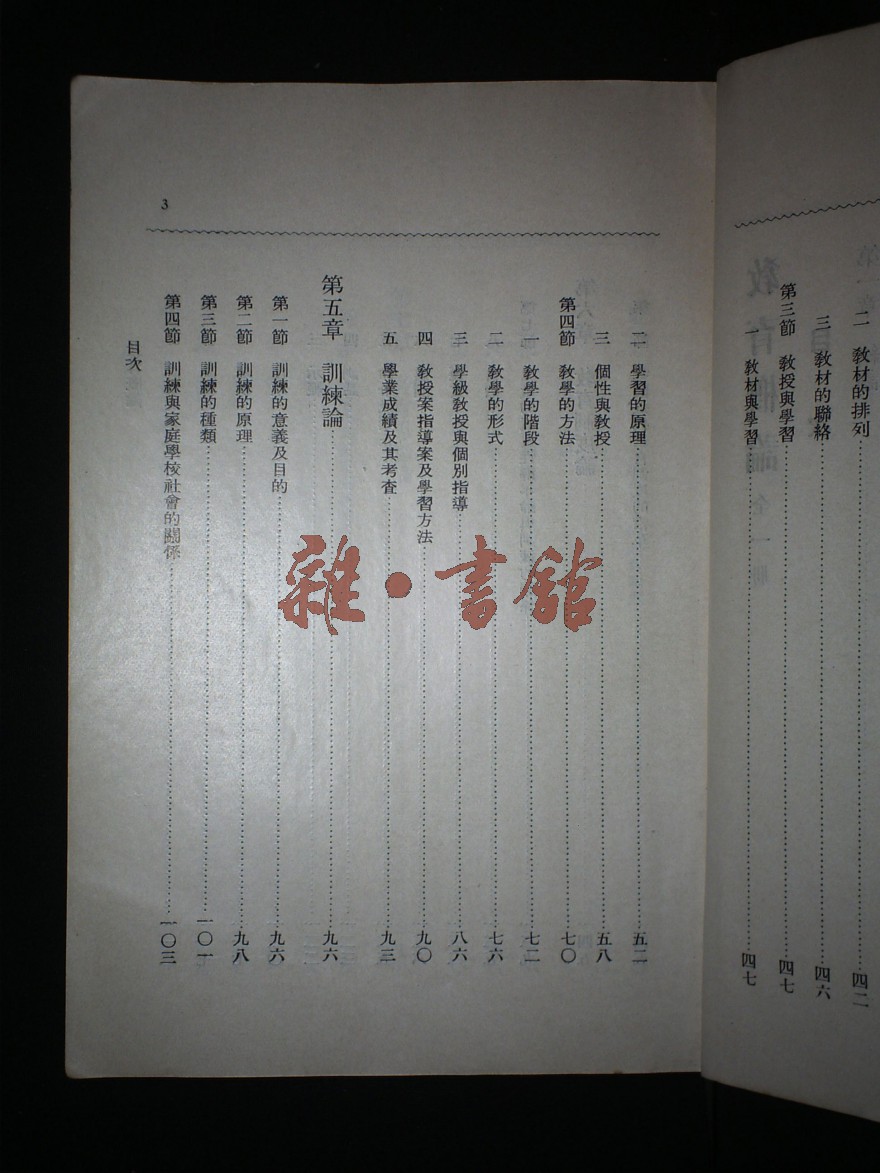 二 教材的排列 四二
三 教材的聯絡 四六
第三節 教授與學習 四七
一 教材與學習 四七
3
二 學習的原理 五二
三 個性與教授 五八
第四節 教學的方法 七〇
一 教學的階段 七二
二 教學的形式 七六
三 學級教授與個別指導 八六
四 教授案指導案及學習方法 九〇
五 學業成績及其考查 九三
第五章 訓練論 九六
第一節 訓練的意義及目的 九六
第二節 訓練的原理 九八
第三節 訓練的種類 一〇一
第四節 訓練與家庭學校社會的關係 一〇三
目次
雜·書館